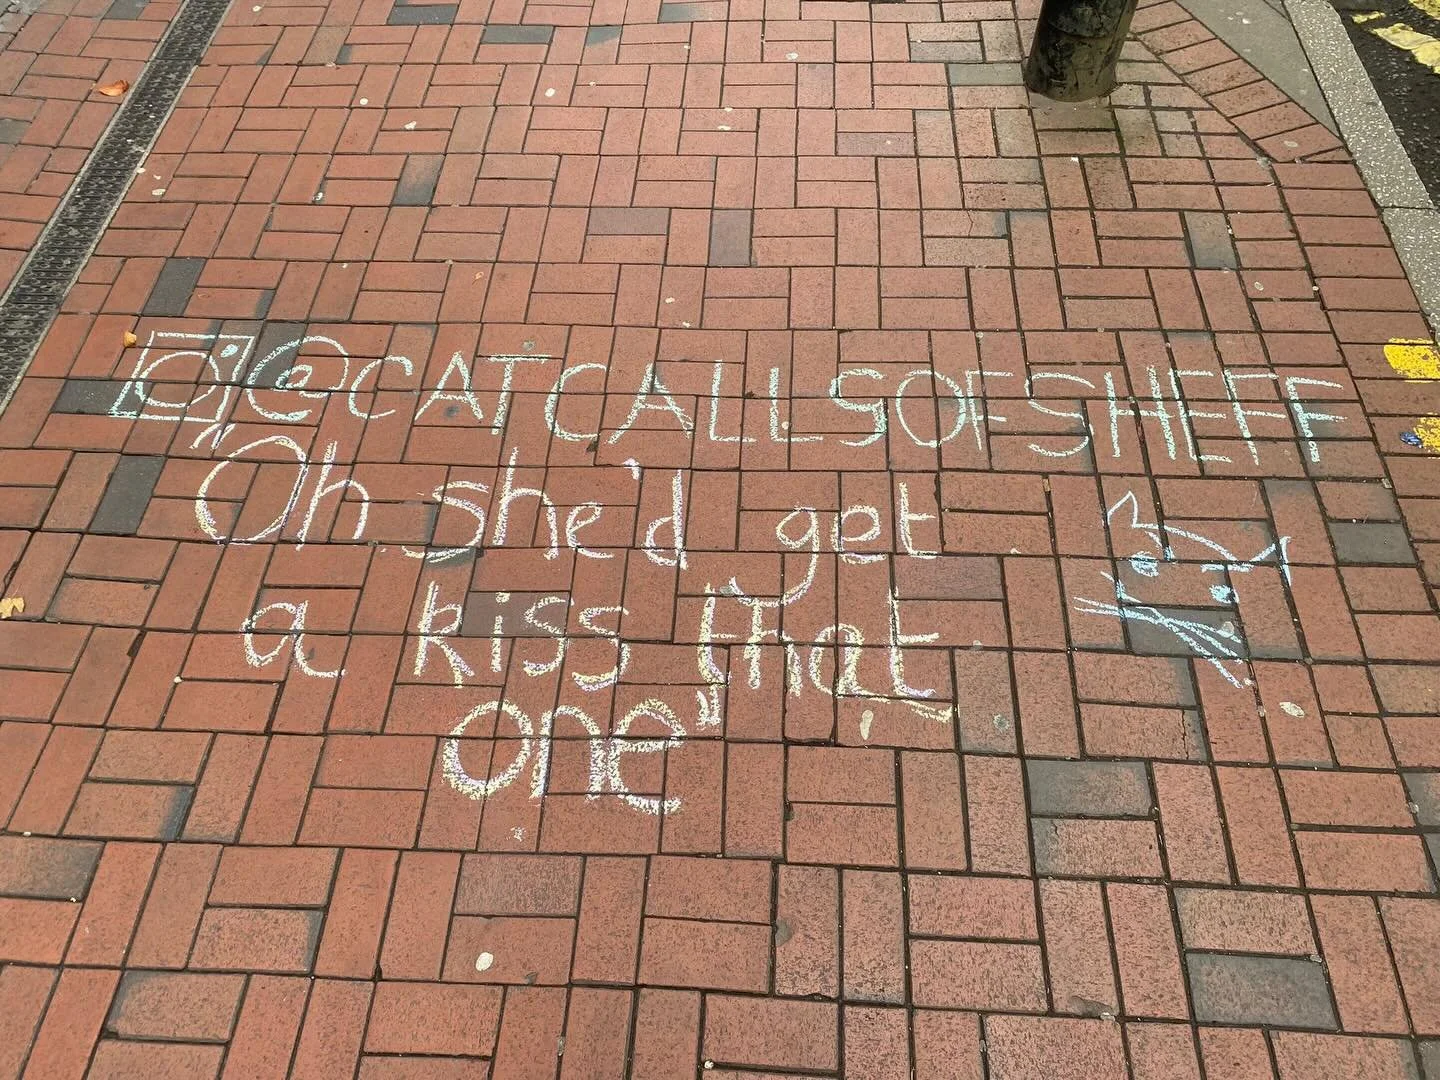 @CATCALLSOFSHEFF
"Oh she'd get
a kiss that
one"